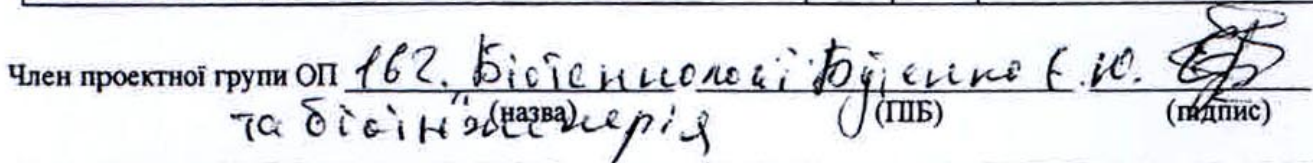 Член проектної групи ОП 162. Біотехнології Є. Ю.
та біоінженерія (назва) (ПІБ) (підпис)